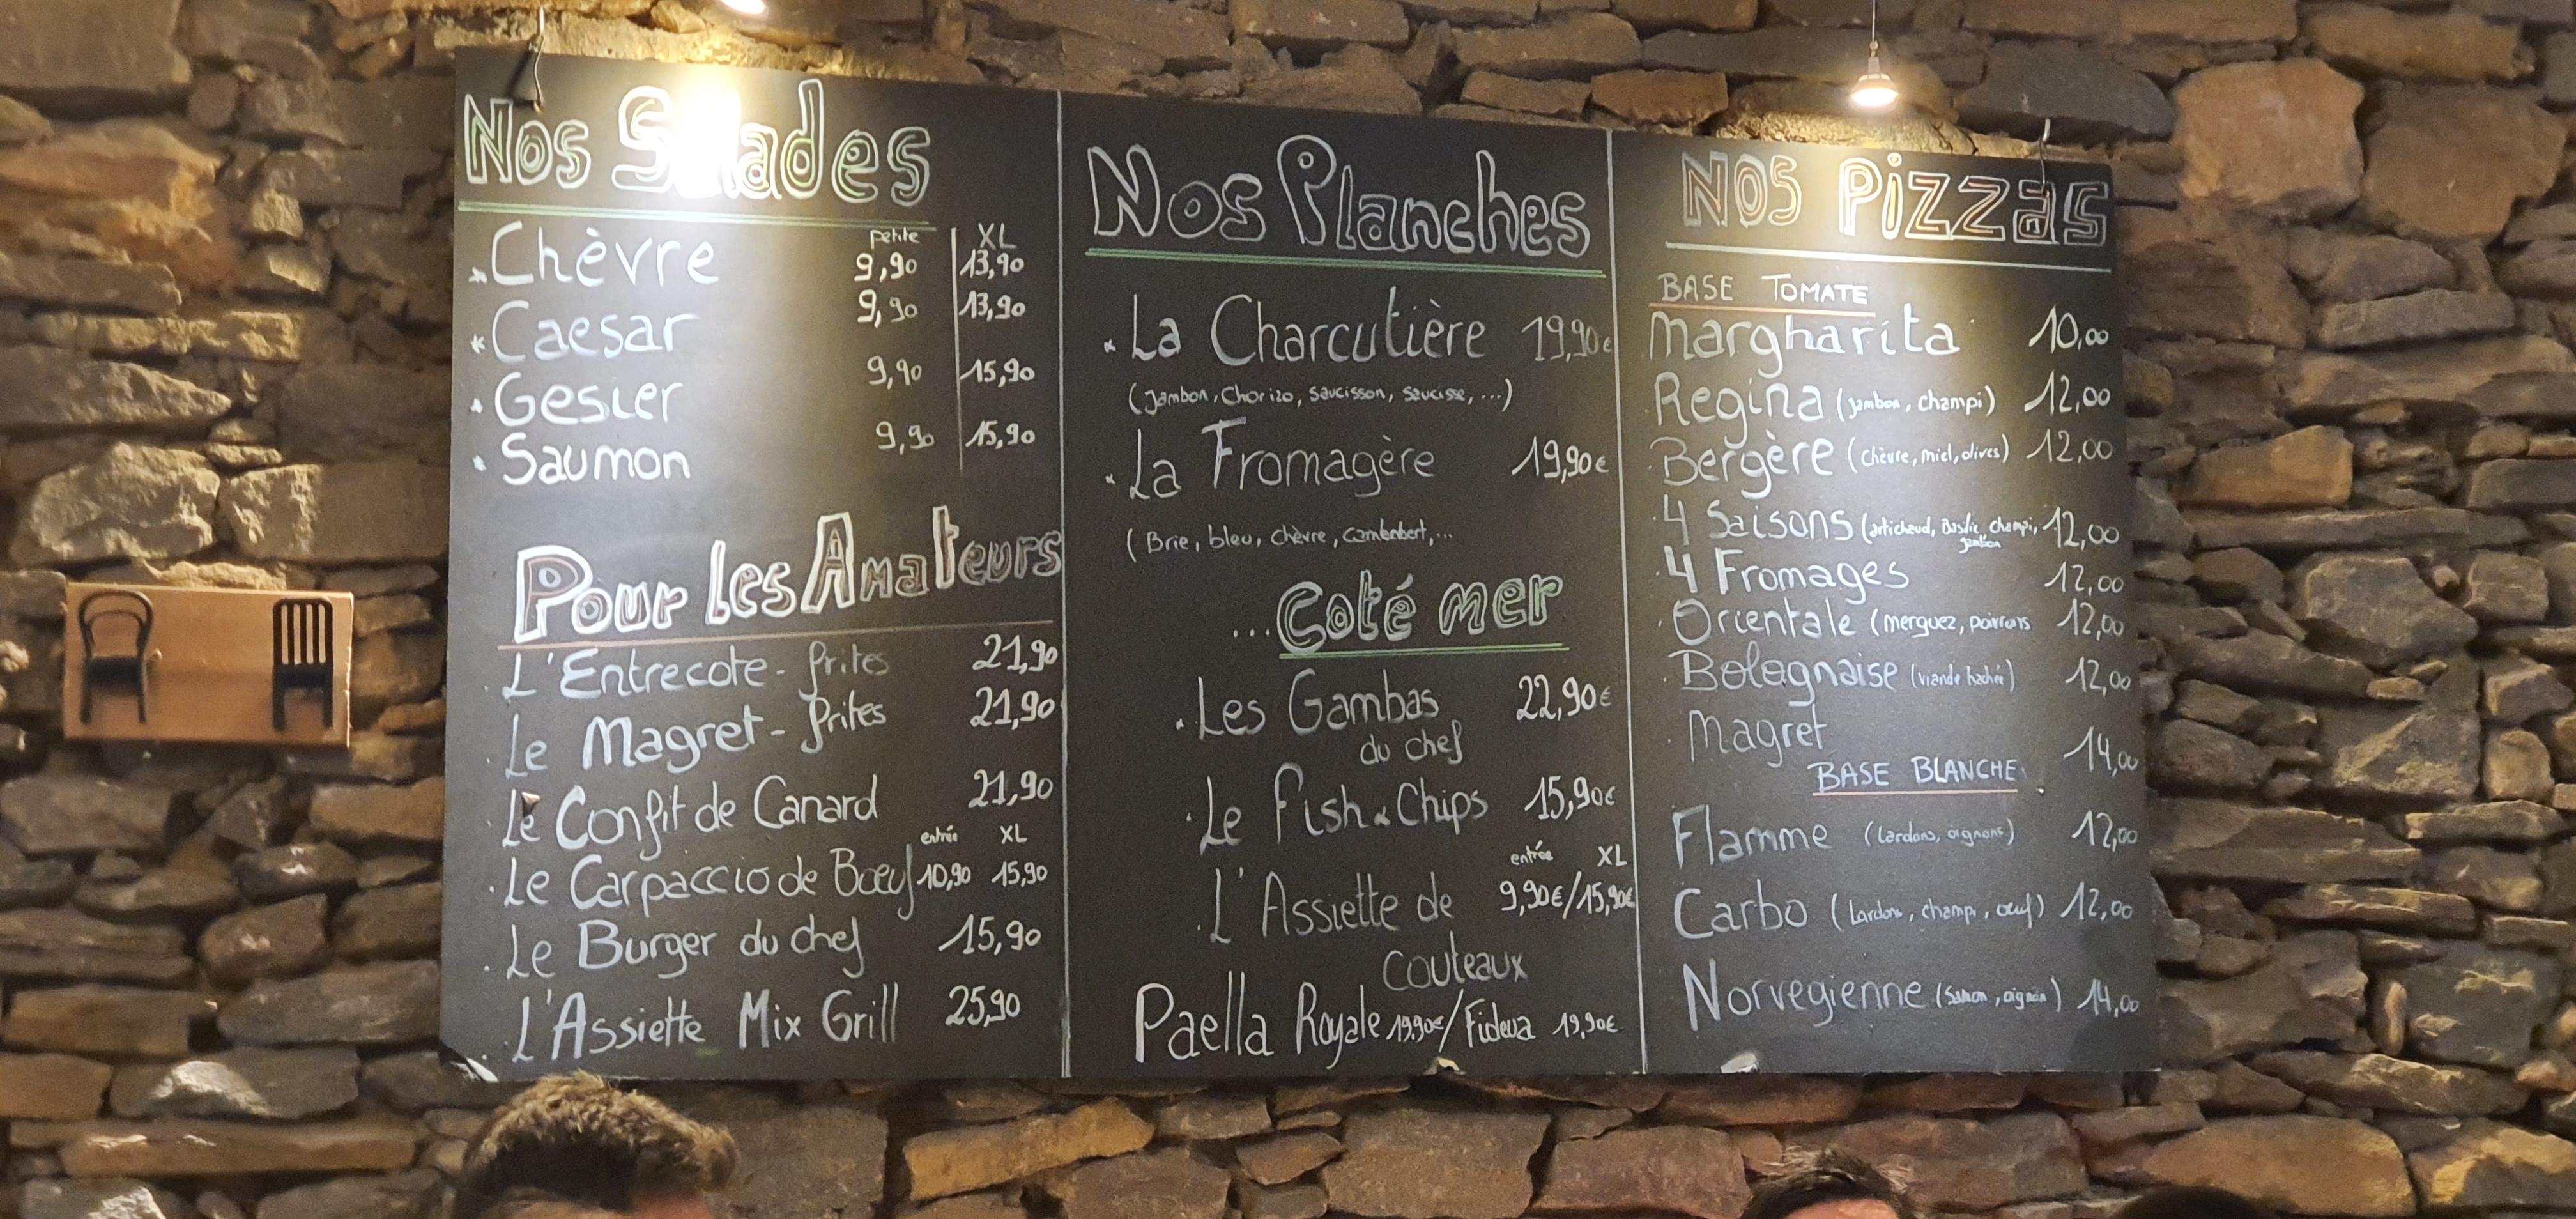 Nos Salades
petite XL
Chèvre 9,90 13,90
Caesar 9,90 13,90
Gesier 9,90 15,90
Saumon 9,90 15,90
Pour les Amateurs
L'Entrecote - frites 21,90
Le Magret - frites 21,90
Le Confit de Canard 21,90
entrée XL
Le Carpaccio de Bœuf 10,90 15,90
Le Burger du chef 15,90
L'Assiette Mix Grill 25,90
Nos Planches
La Charcutière 19,90€
(Jambon, Chorizo, Saucisson, Saucisse, ...)
La Fromagère 19,90€
(Brie, bleu, chèvre, camenbert,...
...Coté mer
Les Gambas 22,90€
du chef
Le Fish & Chips 15,90€
entrée XL
L'Assiette de 9,90€/15,90€
Couteaux
Paella Royale 19,90€/Fideua 19,90€
NOS PizzAS
BASE TOMATE
Margharita 10,00
Regina (jambon, champi) 12,00
Bergère (chèvre, miel, olives) 12,00
4 Saisons (artichaud, Basilic, champi, 12,00
jambon
4 Fromages 12,00
Orientale (merguez, poivrons 12,00
Bolognaise (viande haché) 12,00
Magret 14,00
BASE BLANCHE
Flamme (Lardons, oignons) 12,00
Carbo (Lardons, champi, œuf) 12,00
Norvegienne (Samon, oignon) 14,00